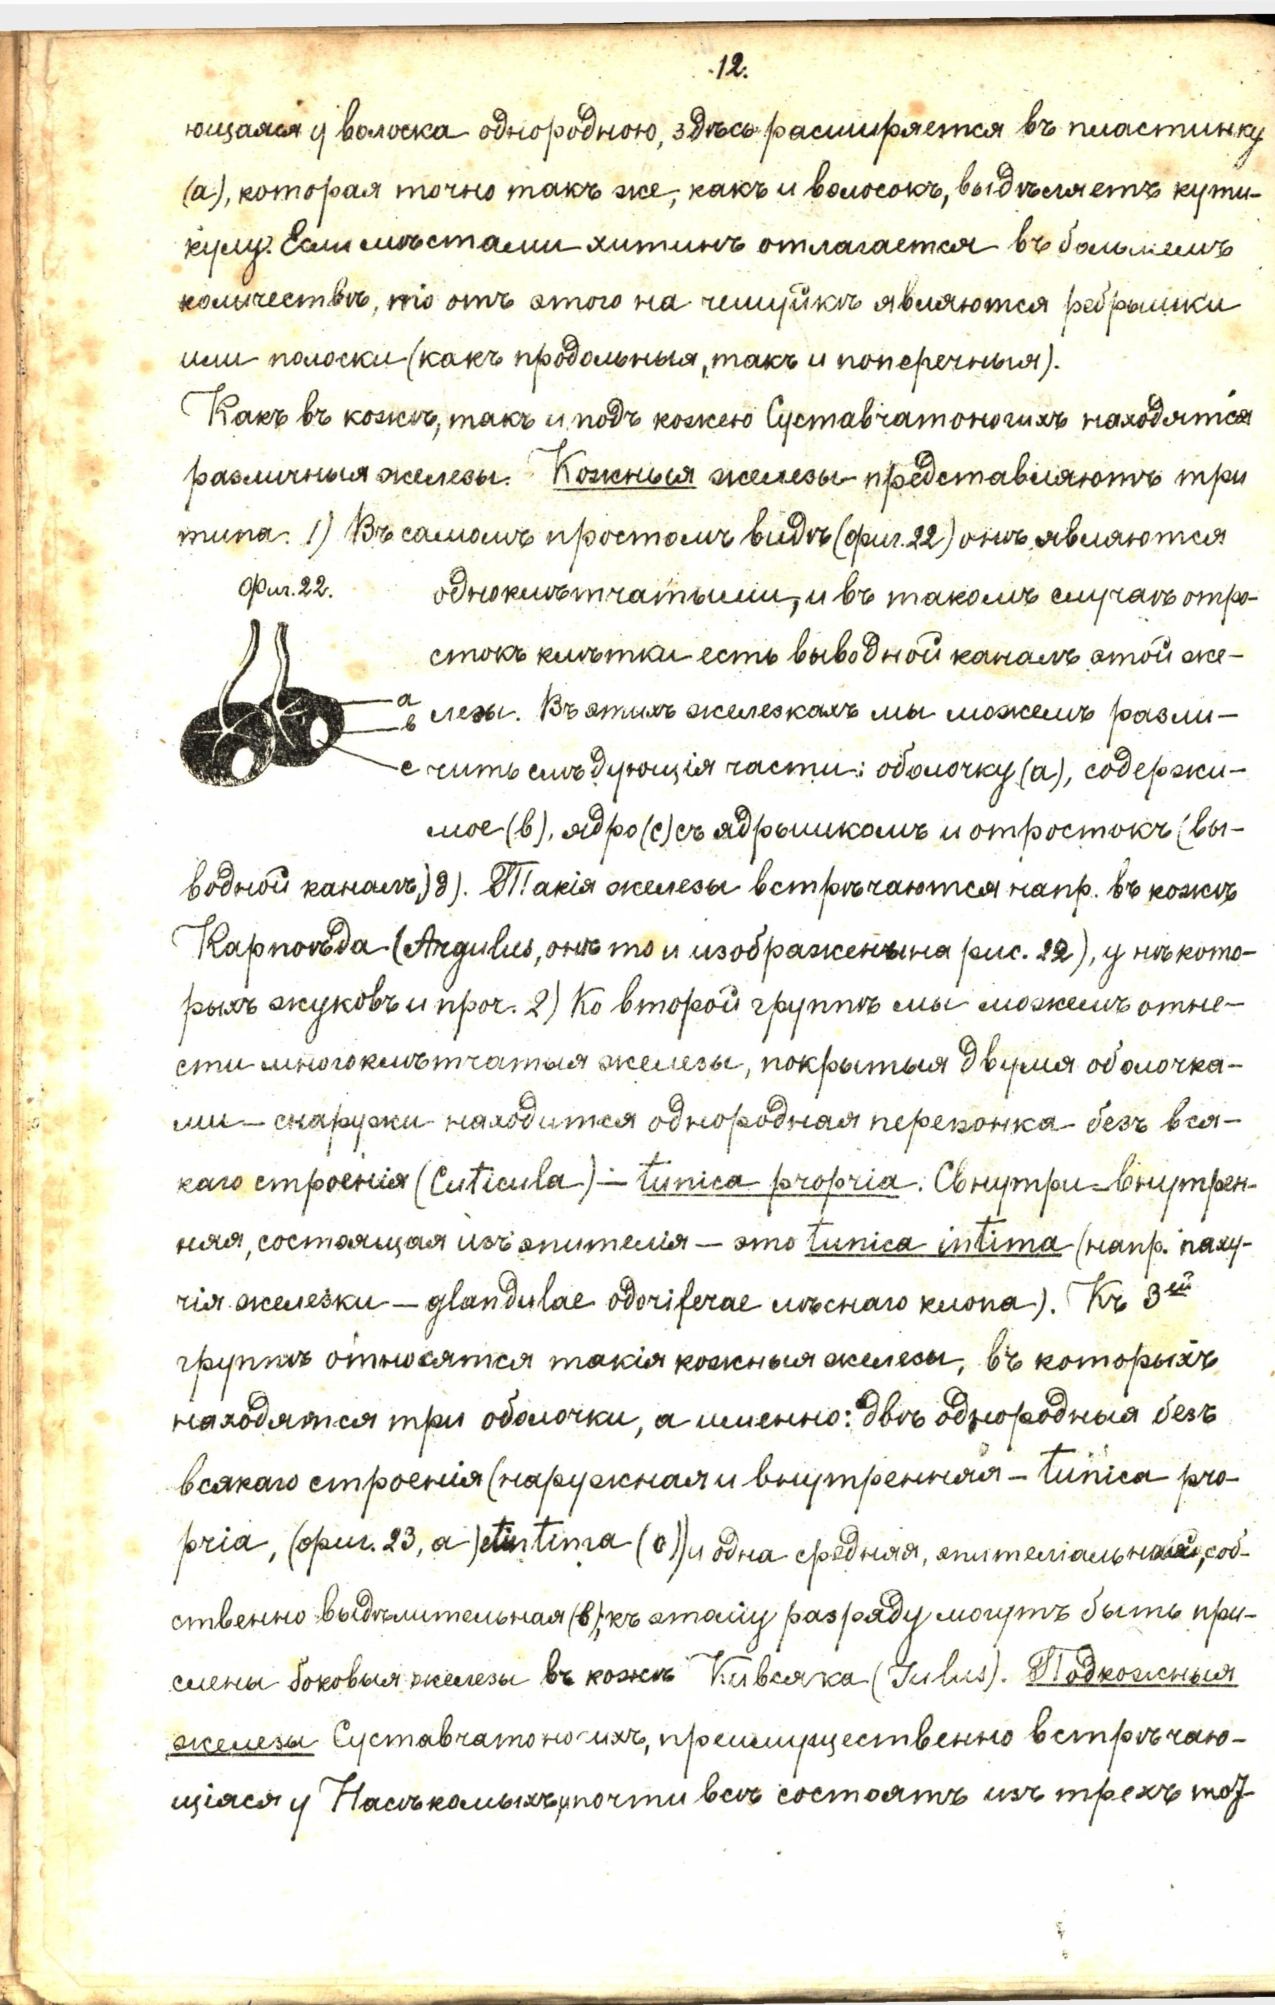 12.
ющаяся у волоска однородною, здѣсь расширяется въ пластинку
(а), которая точно такъ же, какъ и волосокъ, выдѣляетъ кути-
кулу. Если мѣстами хитинъ отлагается въ большемъ
количествѣ, то отъ этого на чешуйкѣ являются ребрышки
или полоски (какъ продольныя, такъ и поперечныя).
Какъ въ кожѣ, такъ и подъ кожею Суставчатоногихъ находятся
различныя железы. Кожныя железы представляютъ три
типа. 1) Въ самомъ простомъ видѣ (фиг. 22) онѣ являются
Фиг. 22.
одноклѣтчатыми, и въ такомъ случаѣ отро-
стокъ клѣтки есть выводной каналъ этой же-
а
лезы. Въ этихъ железкахъ мы можемъ разли-
в
с
чить слѣдующія части: оболочку (а), содержи-
мое (в), ядро (с) съ ядрышкомъ и отростокъ (вы-
водной каналъ) д). Такія железы встрѣчаются напр. въ кожѣ
Карпоѣда (Argulus, онѣ то и изображены на рис. 22), у нѣкото-
рыхъ жуковъ и проч. 2) Ко второй группѣ мы можемъ отне-
сти многоклѣтчатыя железы, покрытыя двумя оболочка-
ми — снаружи находится однородная перепонка безъ вся-
каго строенія (Cuticula) — tunica propria. Свнутри — внутрен-
няя, состоящая изъ эпителія — это tunica intima (напр. паху-
чія железки — glandulae odoriferae лѣснаго клопа). Къ 3ей
группѣ относятся такія кожныя железы, въ которыхъ
находятся три оболочки, а именно: двѣ однородныя безъ
всякаго строенія (наружная и внутренняя — tunica pro-
pria, (фиг. 23, а) et intima (с)) и одна средняя, эпителіальная, соб-
ственно выдѣлительная (в); къ этому разряду могутъ быть при-
слены боковыя железы въ кожѣ Кивсяка (Julus). Подкожныя
железы Суставчатоногихъ, преимущественно встрѣчаю-
щіяся у Насѣкомыхъ, почти всѣ состоятъ изъ трехъ